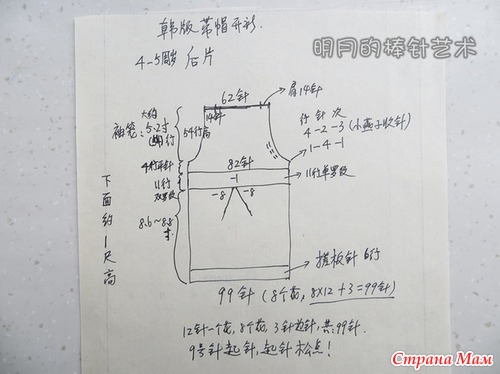 韩版带帽开衫
明月的棒针艺术
4-5周岁 后片
62针
肩14针
14针
大约
袖笼:5.2寸
54行高
行 针 次
4-2-3 (小燕子收针)
1-4-1
4行平针
82针
11行
双罗纹
-1
11行单罗纹
-8 -8
下面约1尺高
8.6~8.8寸
搓板针 6行
99针 (8个花, 8×12+3=99针)
12针一个花, 8个花, 3针边针, 共99针.
9号针起针, 起针松点!
Страна Мам